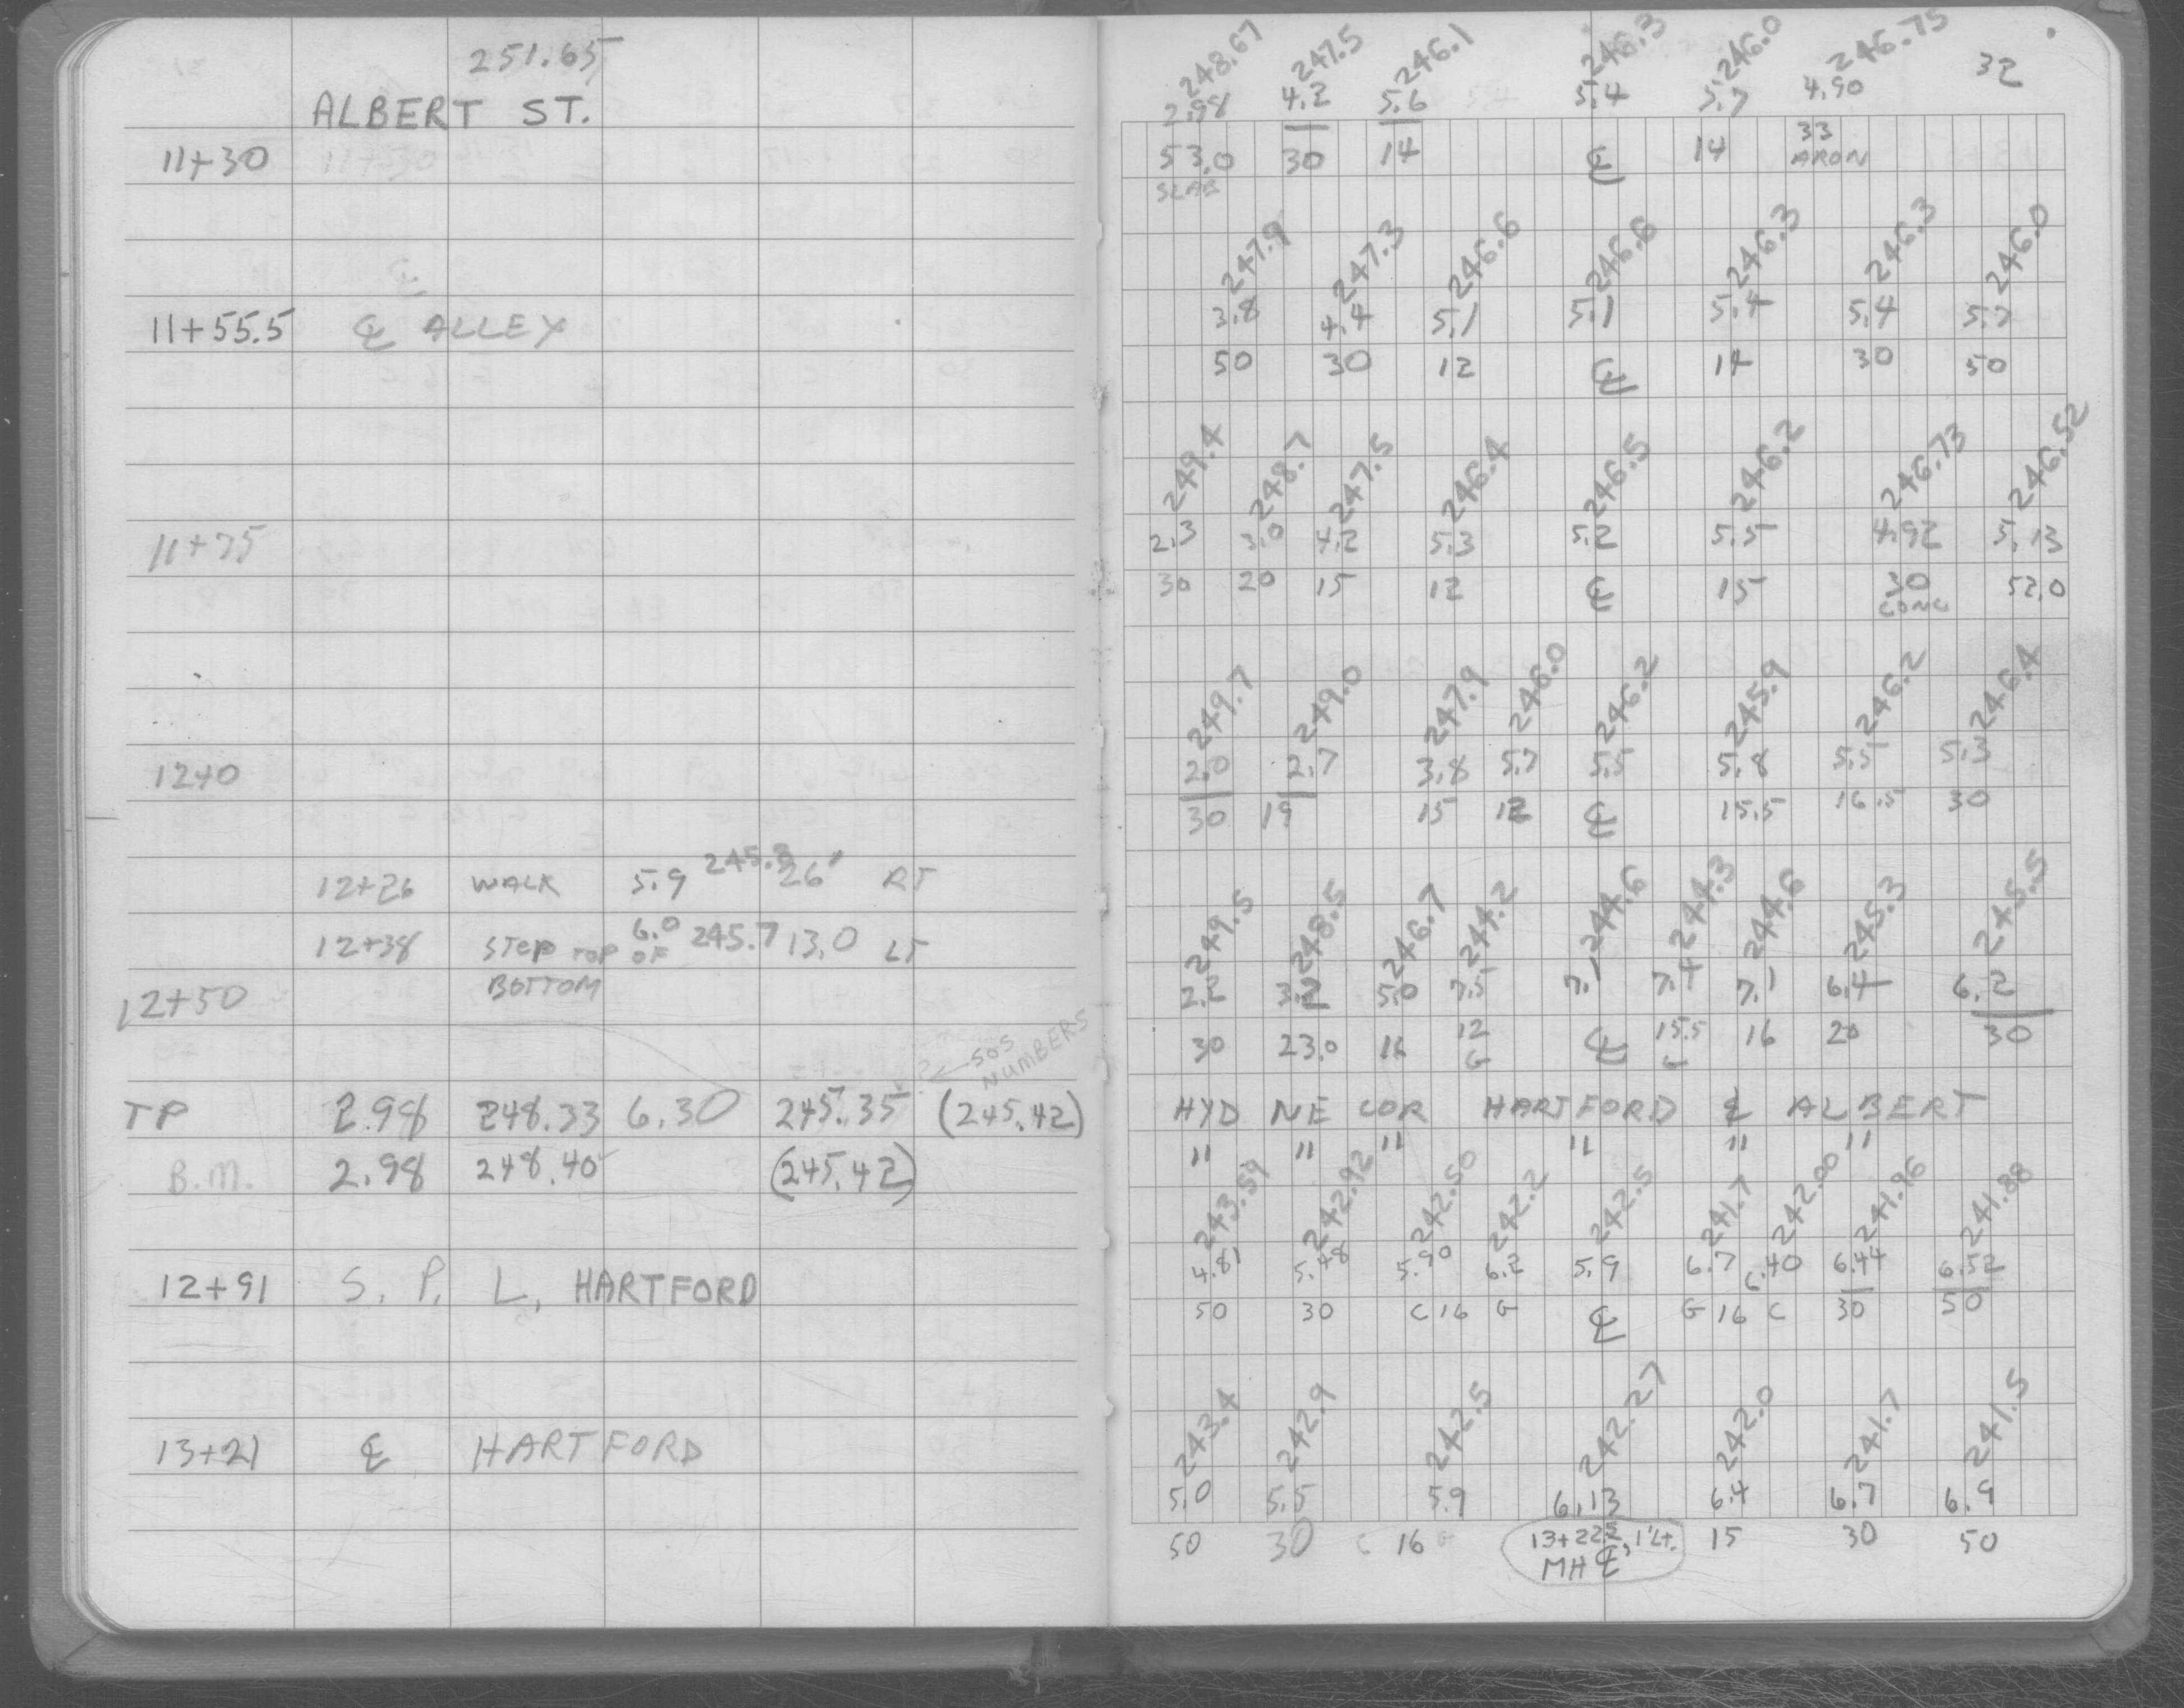 251.65
ALBERT ST.
11+30
11+55.5 ℄ ALLEY
11+75
12+0
12+26 WALK 5.9 245.8 26' RT
12+38 STEP TOP OF 6.0 245.7 13.0 LT
BOTTOM
12+50
? ← SOS NUMBERS
TP 2.98 248.33 6.30 245.35 (245.42)
B.M. 2.98 248.40 (245.42)
12+91 S. P. L. HARTFORD
13+21 ℄ HARTFORD
32
248.67 247.5 246.1 246.3 246.0 246.75
2.98 4.2 5.6 5.4 5.7 4.90
53.0 30 14 ℄ 14 33
SLAB ARON
247.9 247.3 246.6 246.6 246.3 246.3 246.0
3.8 4.4 5.1 5.1 5.4 5.4 5.7
50 30 12 ℄ 14 30 50
249.4 248.7 247.5 246.4 246.5 246.2 246.73 246.52
2.3 3.0 4.2 5.3 5.2 5.5 4.92 5.13
30 20 15 12 ℄ 15 30 52.0
CONC
249.7 249.0 247.9 246.0 246.2 245.9 246.2 246.4
2.0 2.7 3.8 5.7 5.5 5.8 5.5 5.3
30 19 15 12 ℄ 15.5 16.5 30
249.5 248.5 246.7 244.2 244.6 244.3 244.6 245.3 245.5
2.2 3.2 5.0 7.5 7.1 7.4 7.1 6.4 6.2
30 23.0 16 12 ℄ 15.5 16 20 30
G G
HYD NE COR HARTFORD & ALBERT
" " " " " "
243.59 242.92 242.50 242.2 242.5 241.7 242.00 241.96 241.88
4.81 5.48 5.90 6.2 5.9 6.7 6.40 6.44 6.52
50 30 C 16 G ℄ G 16 C 30 50
243.4 242.9 242.5 242.27 242.0 241.7 241.5
5.0 5.5 5.9 6.13 6.4 6.7 6.9
50 30 C 16 G 13+22.5, 1' LT. 15 30 50
MH ℄